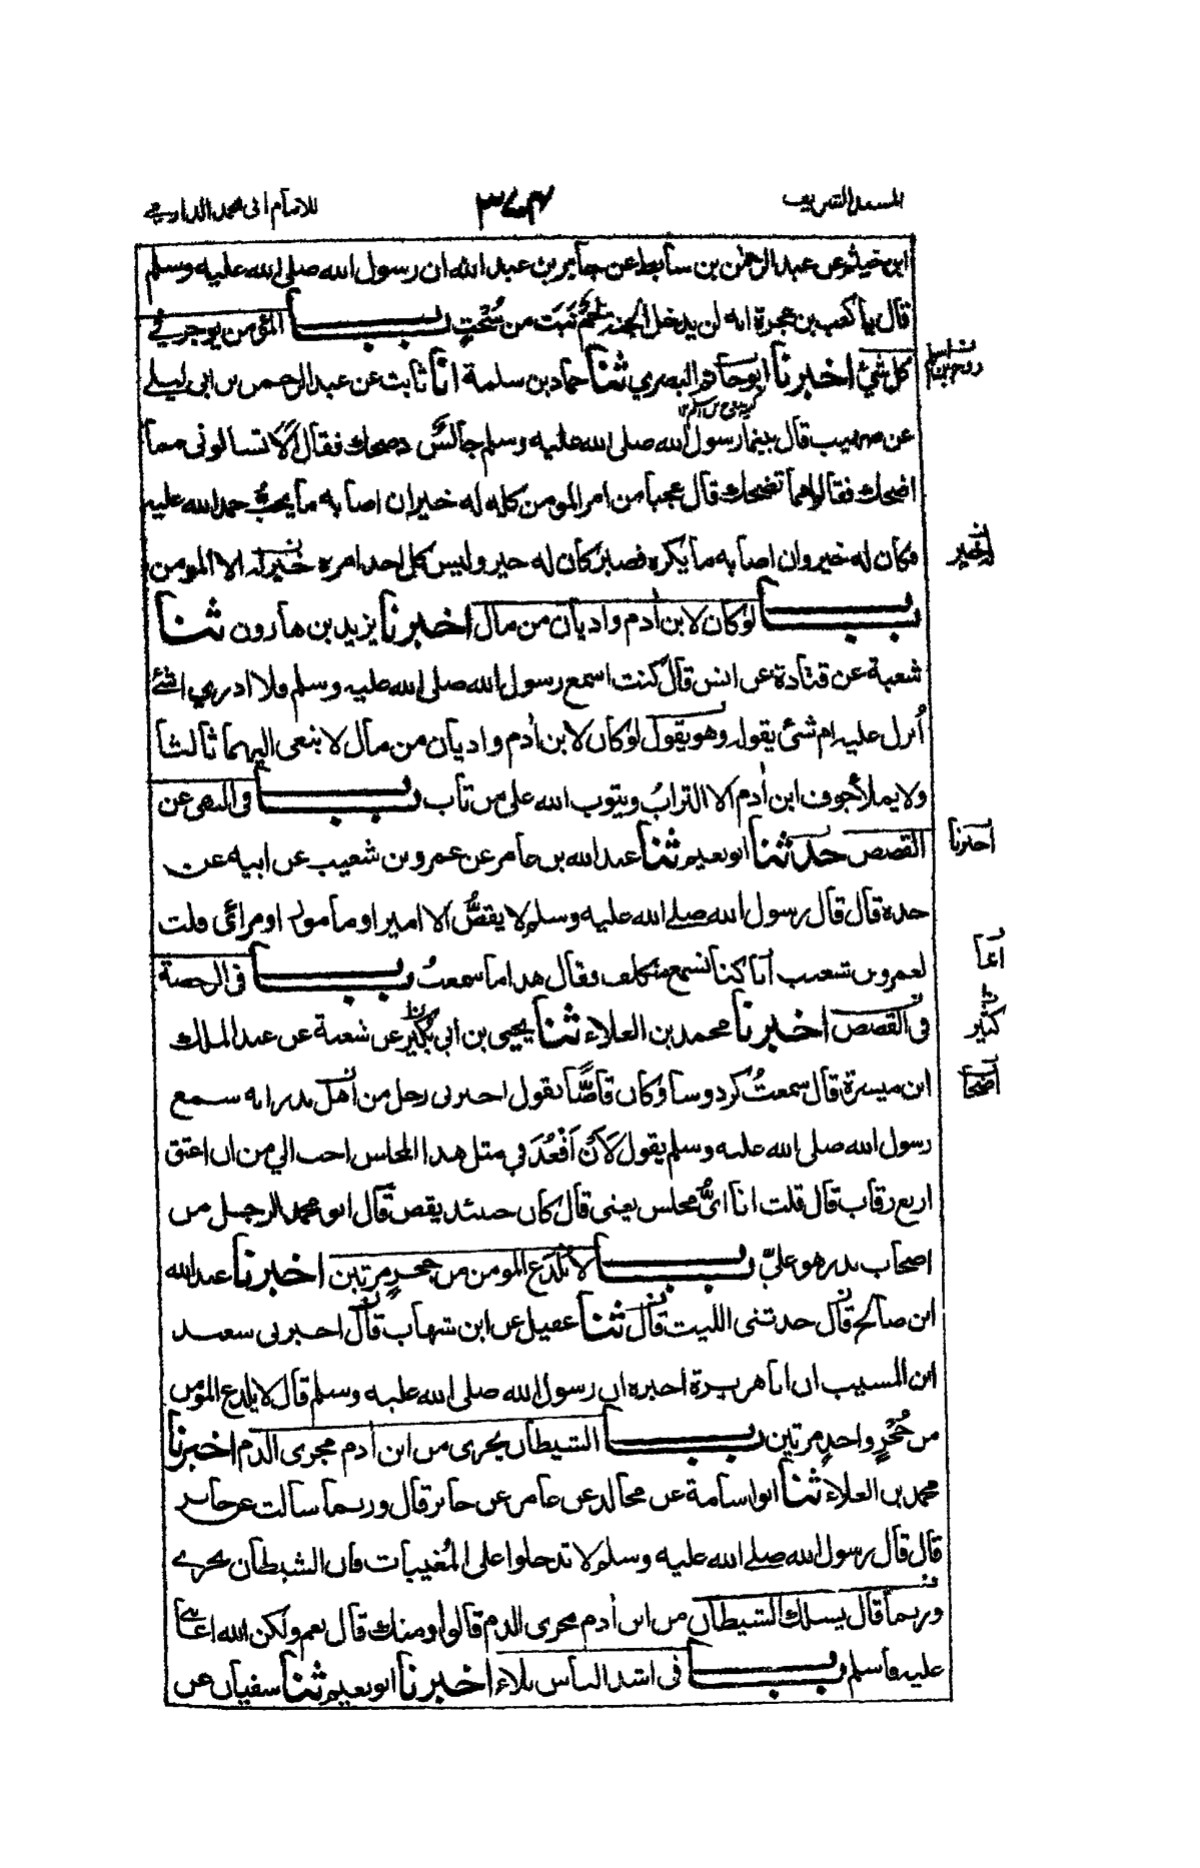 المسند الشريف
٣٧٤
للامام ابى محمد الدارمي
ابن خيثم عن عبد الرحمن بن سابط عن جابر بن عبد الله ان رسول الله صلى الله عليه وسلم
قال يا كعب بن عجرة انه لن يدخل الجنة لحم نبت من سُحْتٍ باب المؤمن يوجر في
كل شئ اخبرنا ابو حاتم البصري ثنا حماد بن سلمة انا ثابت عن عبد الرحمن بن ابى ليلے
عن صهيب قال بينما رسول الله صلى الله عليه وسلم جالسٌ ضحك فقال اَلَا تسألونى مما
اضحك فقالوا مما تضحك قال عجبا من امر المومن كله له خير ان اصابه ما يحبُّ حمد الله عليه
فكان له خير وان اصابه ما يكره فصبر كان له خير وليس كل احد امره خيرله الا المومن
باب لو كان لابن أدم واديان من مال اخبرنا يزيد بن هارون ثنا
شعبة عن قتادة عن انس قال كنت اسمع رسول الله صلى الله عليه وسلم فلا ادري اشئ
أنزل عليه ام شئ يقوله وهو يقول لو كان لابن أدم واديان من مال لابتغى اليهما ثالثا
ولا يملأ جوف ابن أدم الا الترابُ ويتوب الله على من تاب باب فى النهى عن
القصص حدثنا ابو نعيم ثنا عبد الله بن عامر عن عمرو بن شعيب عن ابيه عن
جده قال قال رسول الله صلے الله عليه وسلم لا يقصُّ الا امير او مامور او مرائى قلت
لعمرو بن شعيب انا كنا نسمع متكلف فقال هذا ما سمعتُ باب فى الرخصة
فى القصص اخبرنا محمد بن العلاء ثنا يحيى بن ابى بكير عن شعبة عن عبد الملك
ابن ميسرة قال سمعتُ كردوسا وكان قاصًّا يقول اخبرنى رجل من اهل بدر انه سمع
رسول الله صلى الله عليه وسلم يقول لَاَنْ اَقْعُدَ في مثل هذا المجلس احب الي من ان اعتق
اربع رقاب قال قلت انا اىُّ مجلس يعنى قال كان حينئذ يقص قال ابو محمد الرجل من
اصحاب بدر هو عليّ باب لا يُلْدَغ المومن من جحرٍ مرتين اخبرنا عبد الله
ابن صالح قال حدثنى الليث قال ثنا عقيل عن ابن شهاب قال اخبرنى سعيد
ابن المسيب ان ابا هريرة اخبره ان رسول الله صلى الله عليه وسلم قال لا يلدغ المؤمن
من جُحْرٍ واحدٍ مرتين باب الشيطان يجرى من ابن أدم مجرى الدم اخبرنا
محمد بن العلاء ثنا ابو اسامة عن مجالد عن عامر عن جابر قال وربما سالت عن جابر
قال قال رسول الله صلے الله عليه وسلم لا تدخلوا على المُغيبات فان الشيطان يجرے
وربما قال يسلك الشيطان من ابن أدم مجرى الدم قالوا ومنك قال نعم ولكن الله اعاننى
عليه فاسلم باب فى اشد الناس بلاء اخبرنا ابو نعيم ثنا سفيان عن
اخبرنا
كثير